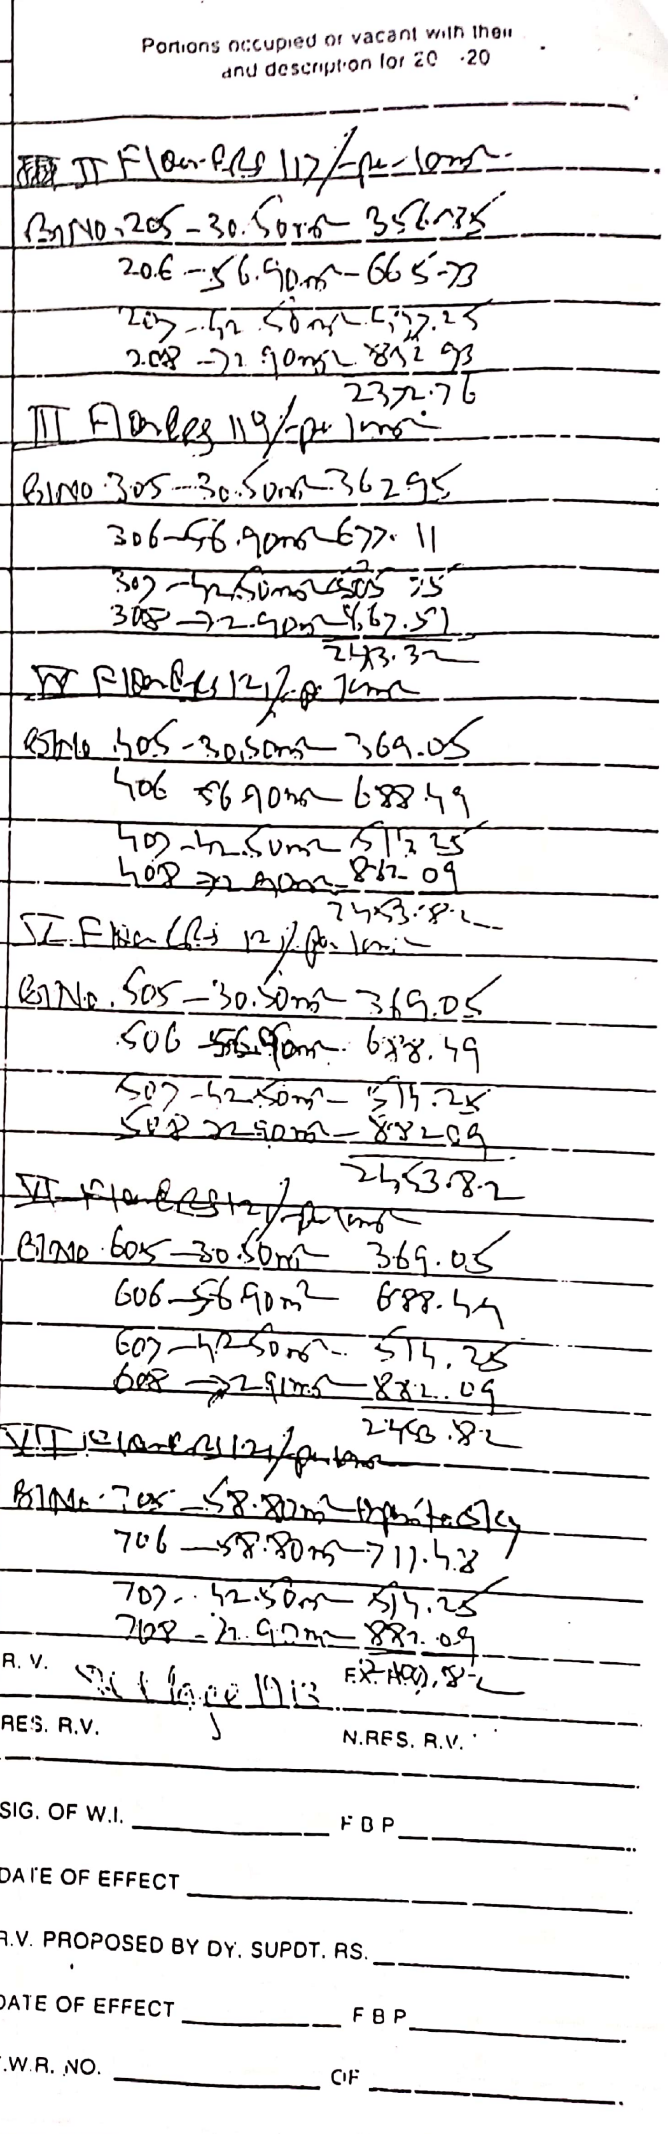 Portions occupied or vacant with their
and description for 20 -20
II Floor @ Rs 117/- per 10 m²
Bl No. 205 - 30.50 m² 356.85
206 - 56.90 m² - 665-73
207 - 42.50 m² 497.25
208 - 72.90 m² 852 93
2372.76
III Floor @ Rs 119/- per 10 m²
Bl No 305 - 30.50 m² 362 95
306 - 56.90 m² 677.11
307 - 42.50 m² 505 75
308 - 72.90 m² 867.51
2413.32
IV Floor @ Rs 121/- per 10 m²
Bl No. 405 - 30.50 m² - 369.05
406 56 90 m² - 688.49
407 - 42.50 m² 514 25
408 72.90 m² - 882 09
2453.82
V Floor @ Rs 121/- per 10 m²
Bl No. 505 - 30.50 m² - 369.05
506 56.90 m² 688.49
507 - 42.50 m² - 514.25
508 72 90 m² - 882 09
2453.82
VI Floor @ Rs 121/- per 10 m²
Bl No 605 - 30.50 m² 369.05
606 - 56 90 m² 688.49
607 - 42 50 m² 514.25
608 - 72 90 m² - 882.09
2453.82
VII Floor @ Rs 121/- per 10 m²
Bl No. 705 - 58.80 m²
706 - 58.80 m² - 711.48
707 - 42.50 m² 514.25
708 - 72.90 m² 882.09
R. V.
RES. R.V. N.RES. R.V.
SIG. OF W.I. F B P
DATE OF EFFECT
R.V. PROPOSED BY DY. SUPDT. RS.
DATE OF EFFECT F B P
.W.R. NO. OF